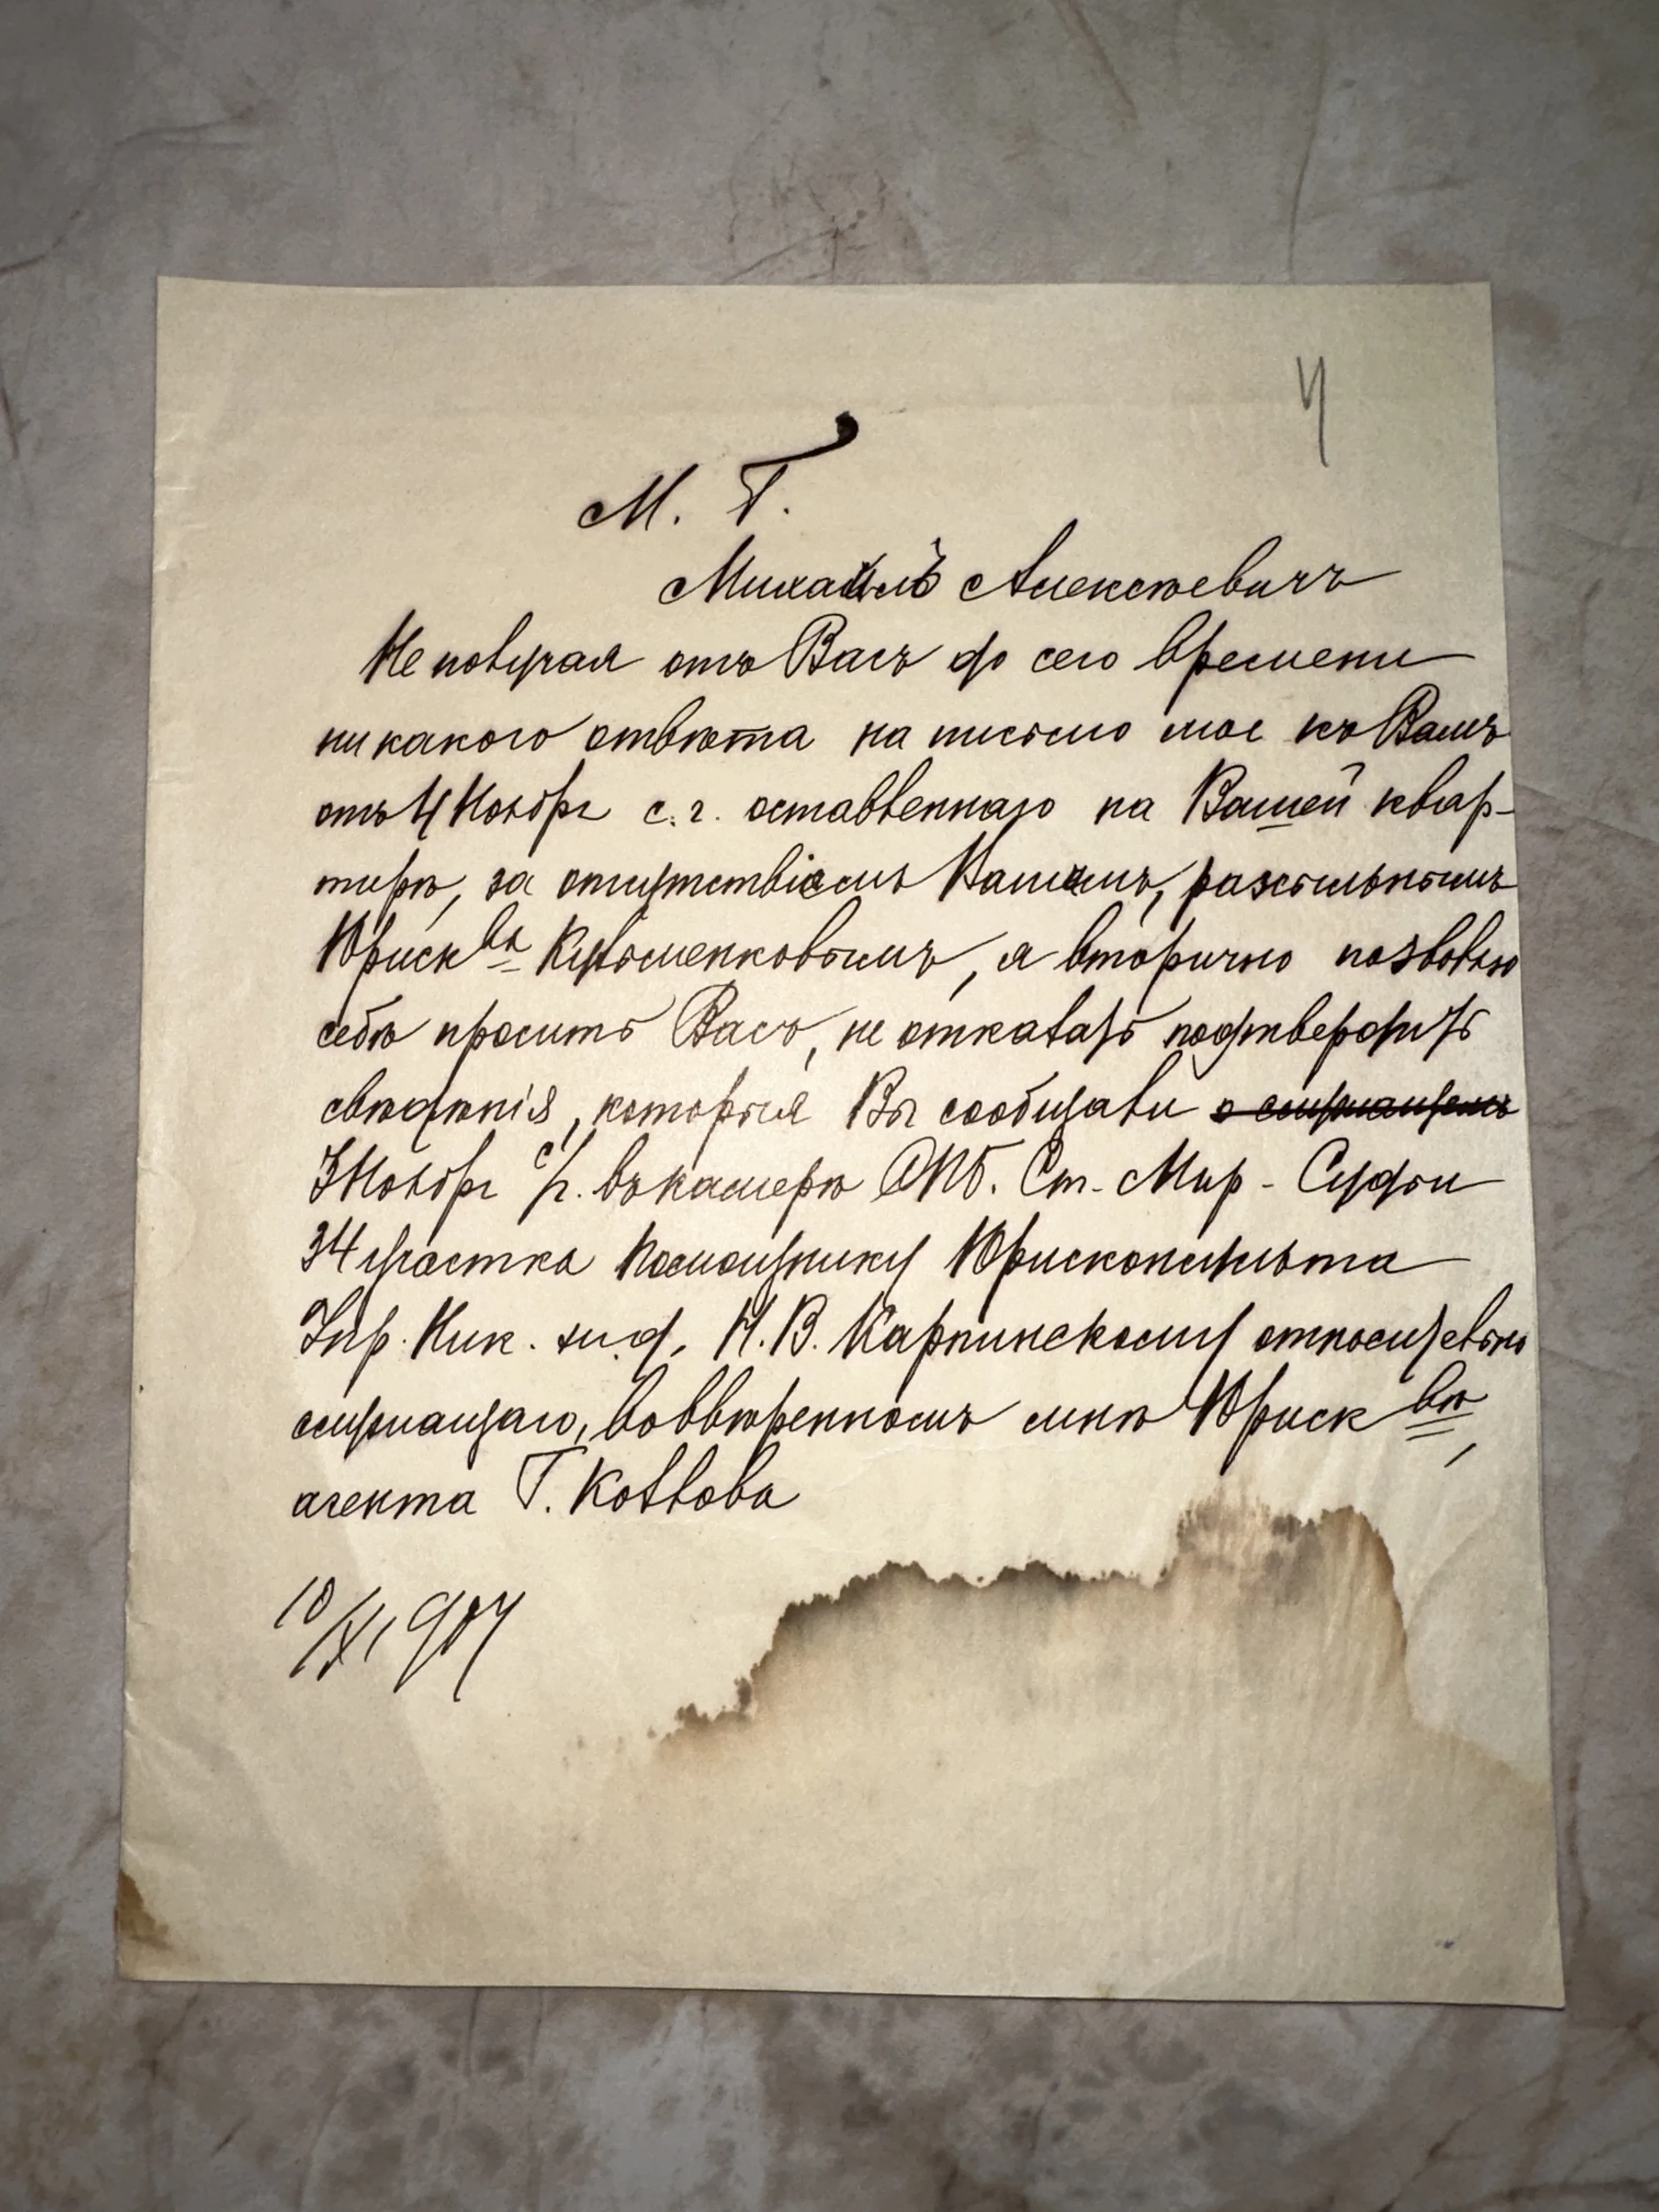 4
М. Г.
Михаилъ Алексѣевичъ
Не получая отъ Васъ до сего времени
никакого отвѣта на письмо мое къ Вамъ
отъ 4 Ноября с. г. оставленнаго на Вашей квар-
тирѣ, за отсутствіемъ Вашимъ, разсыльнымъ
Юриск ва Кульменковымъ, я вторично позволяю
себѣ просить Васъ, не отказать подтвердить
свѣдѣнія, которыя Вы сообщали о служащемъ
3 Ноября с/г. въ камерѣ СПБ. Ст. Мир. Судьи
34 участка Помощнику Юрисконсульта
Упр. Ник. ж. д. Н. В. Карпинскому относительно
служащаго, во ввѣренномъ мнѣ Юриск вѣ,
агента Г. Козлова
10/XI 907